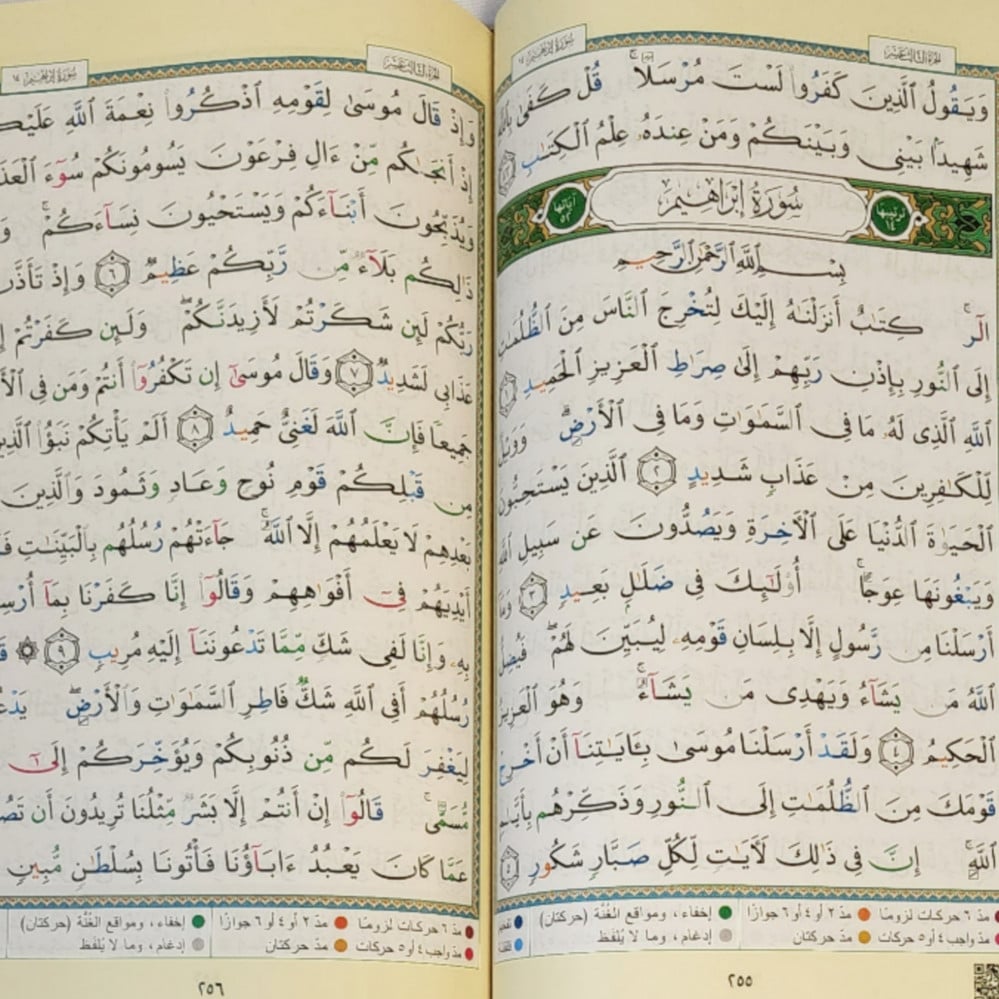 الجزء الثالث عشر
سورة إبراهيم ١٤
وَيَقُولُ ٱلَّذِينَ كَفَرُوا۟ لَسْتَ مُرْسَلًا ۚ قُلْ كَفَىٰ
شَهِيدًۢا بَيْنِى وَبَيْنَكُمْ وَمَنْ عِندَهُۥ عِلْمُ ٱلْكِتَـٰبِ
ترتيبها ١٤ سُورَةُ إِبْرَاهِيم آياتها ٥٢
بِسْمِ ٱللَّهِ ٱلرَّحْمَـٰنِ ٱلرَّحِيمِ
الٓر ۚ كِتَـٰبٌ أَنزَلْنَـٰهُ إِلَيْكَ لِتُخْرِجَ ٱلنَّاسَ مِنَ ٱلظُّلُمَـٰتِ
إِلَى ٱلنُّورِ بِإِذْنِ رَبِّهِمْ إِلَىٰ صِرَٰطِ ٱلْعَزِيزِ ٱلْحَمِيدِ ١
ٱللَّهِ ٱلَّذِى لَهُۥ مَا فِى ٱلسَّمَـٰوَٰتِ وَمَا فِى ٱلْأَرْضِ ۗ وَوَيْلٌ
لِّلْكَـٰفِرِينَ مِنْ عَذَابٍ شَدِيدٍ ٢ ٱلَّذِينَ يَسْتَحِبُّونَ
ٱلْحَيَوٰةَ ٱلدُّنْيَا عَلَى ٱلْـَٔاخِرَةِ وَيَصُدُّونَ عَن سَبِيلِ ٱللَّهِ
وَيَبْغُونَهَا عِوَجًا ۚ أُو۟لَـٰٓئِكَ فِى ضَلَـٰلٍۭ بَعِيدٍ ٣
أَرْسَلْنَا مِن رَّسُولٍ إِلَّا بِلِسَانِ قَوْمِهِۦ لِيُبَيِّنَ لَهُمْ ۖ فَيُضِلُّ
ٱللَّهُ مَن يَشَآءُ وَيَهْدِى مَن يَشَآءُ ۚ وَهُوَ ٱلْعَزِيزُ
ٱلْحَكِيمُ ٤ وَلَقَدْ أَرْسَلْنَا مُوسَىٰ بِـَٔايَـٰتِنَآ أَنْ أَخْرِجْ
قَوْمَكَ مِنَ ٱلظُّلُمَـٰتِ إِلَى ٱلنُّورِ وَذَكِّرْهُم بِأَيَّىٰمِ
ٱللَّهِ ۚ إِنَّ فِى ذَٰلِكَ لَـَٔايَـٰتٍ لِّكُلِّ صَبَّارٍ شَكُورٍ
مدّ ٦ حركات لزومًا مدّ ٢ أو ٤ أو ٦ جوازًا إخفاء، ومواقع الغُنَّة (حركتان)
مدّ واجب ٤ أو ٥ حركات مدّ حركتان إدغام، وما لا يُلفَظ
٢٥٥
الجزء الثالث عشر
سورة إبراهيم ١٤
وَإِذْ قَالَ مُوسَىٰ لِقَوْمِهِ ٱذْكُرُوا۟ نِعْمَةَ ٱللَّهِ
إِذْ أَنجَىٰكُم مِّنْ ءَالِ فِرْعَوْنَ يَسُومُونَكُمْ سُوٓءَ
وَيُذَبِّحُونَ أَبْنَآءَكُمْ وَيَسْتَحْيُونَ نِسَآءَكُمْ ۚ
ذَٰلِكُم بَلَآءٌ مِّن رَّبِّكُمْ عَظِيمٌ ٦ وَإِذْ تَأَذَّنَ
رَبُّكُمْ لَئِن شَكَرْتُمْ لَأَزِيدَنَّكُمْ ۖ وَلَئِن كَفَرْتُمْ
عَذَابِى لَشَدِيدٌ ٧ وَقَالَ مُوسَىٰٓ إِن تَكْفُرُوٓا۟ أَنتُمْ وَمَن فِى
جَمِيعًا فَإِنَّ ٱللَّهَ لَغَنِىٌّ حَمِيدٌ ٨ أَلَمْ يَأْتِكُمْ نَبَؤُا۟ ٱلَّذِينَ
مِن قَبْلِكُمْ قَوْمِ نُوحٍ وَعَادٍ وَثَمُودَ وَٱلَّذِينَ
بَعْدِهِمْ لَا يَعْلَمُهُمْ إِلَّا ٱللَّهُ ۚ جَآءَتْهُمْ رُسُلُهُم بِٱلْبَيِّنَـٰتِ
أَيْدِيَهُمْ فِىٓ أَفْوَٰهِهِمْ وَقَالُوٓا۟ إِنَّا كَفَرْنَا بِمَآ
بِهِۦ وَإِنَّا لَفِى شَكٍّ مِّمَّا تَدْعُونَنَآ إِلَيْهِ مُرِيبٍ ٩ ۞
رُسُلُهُمْ أَفِى ٱللَّهِ شَكٌّ فَاطِرِ ٱلسَّمَـٰوَٰتِ وَٱلْأَرْضِ ۖ
لِيَغْفِرَ لَكُم مِّن ذُنُوبِكُمْ وَيُؤَخِّرَكُمْ إِلَىٰٓ
مُّسَمًّى ۚ قَالُوٓا۟ إِنْ أَنتُمْ إِلَّا بَشَرٌ مِّثْلُنَا تُرِيدُونَ أَن
عَمَّا كَانَ يَعْبُدُ ءَابَآؤُنَا فَأْتُونَا بِسُلْطَـٰنٍ مُّبِينٍ
مدّ ٦ حركات لزومًا مدّ ٢ أو ٤ أو ٦ جوازًا إخفاء، ومواقع الغُنَّة (حركتان)
مدّ واجب ٤ أو ٥ حركات مدّ حركتان إدغام، وما لا يُلفَظ
٢٥٦